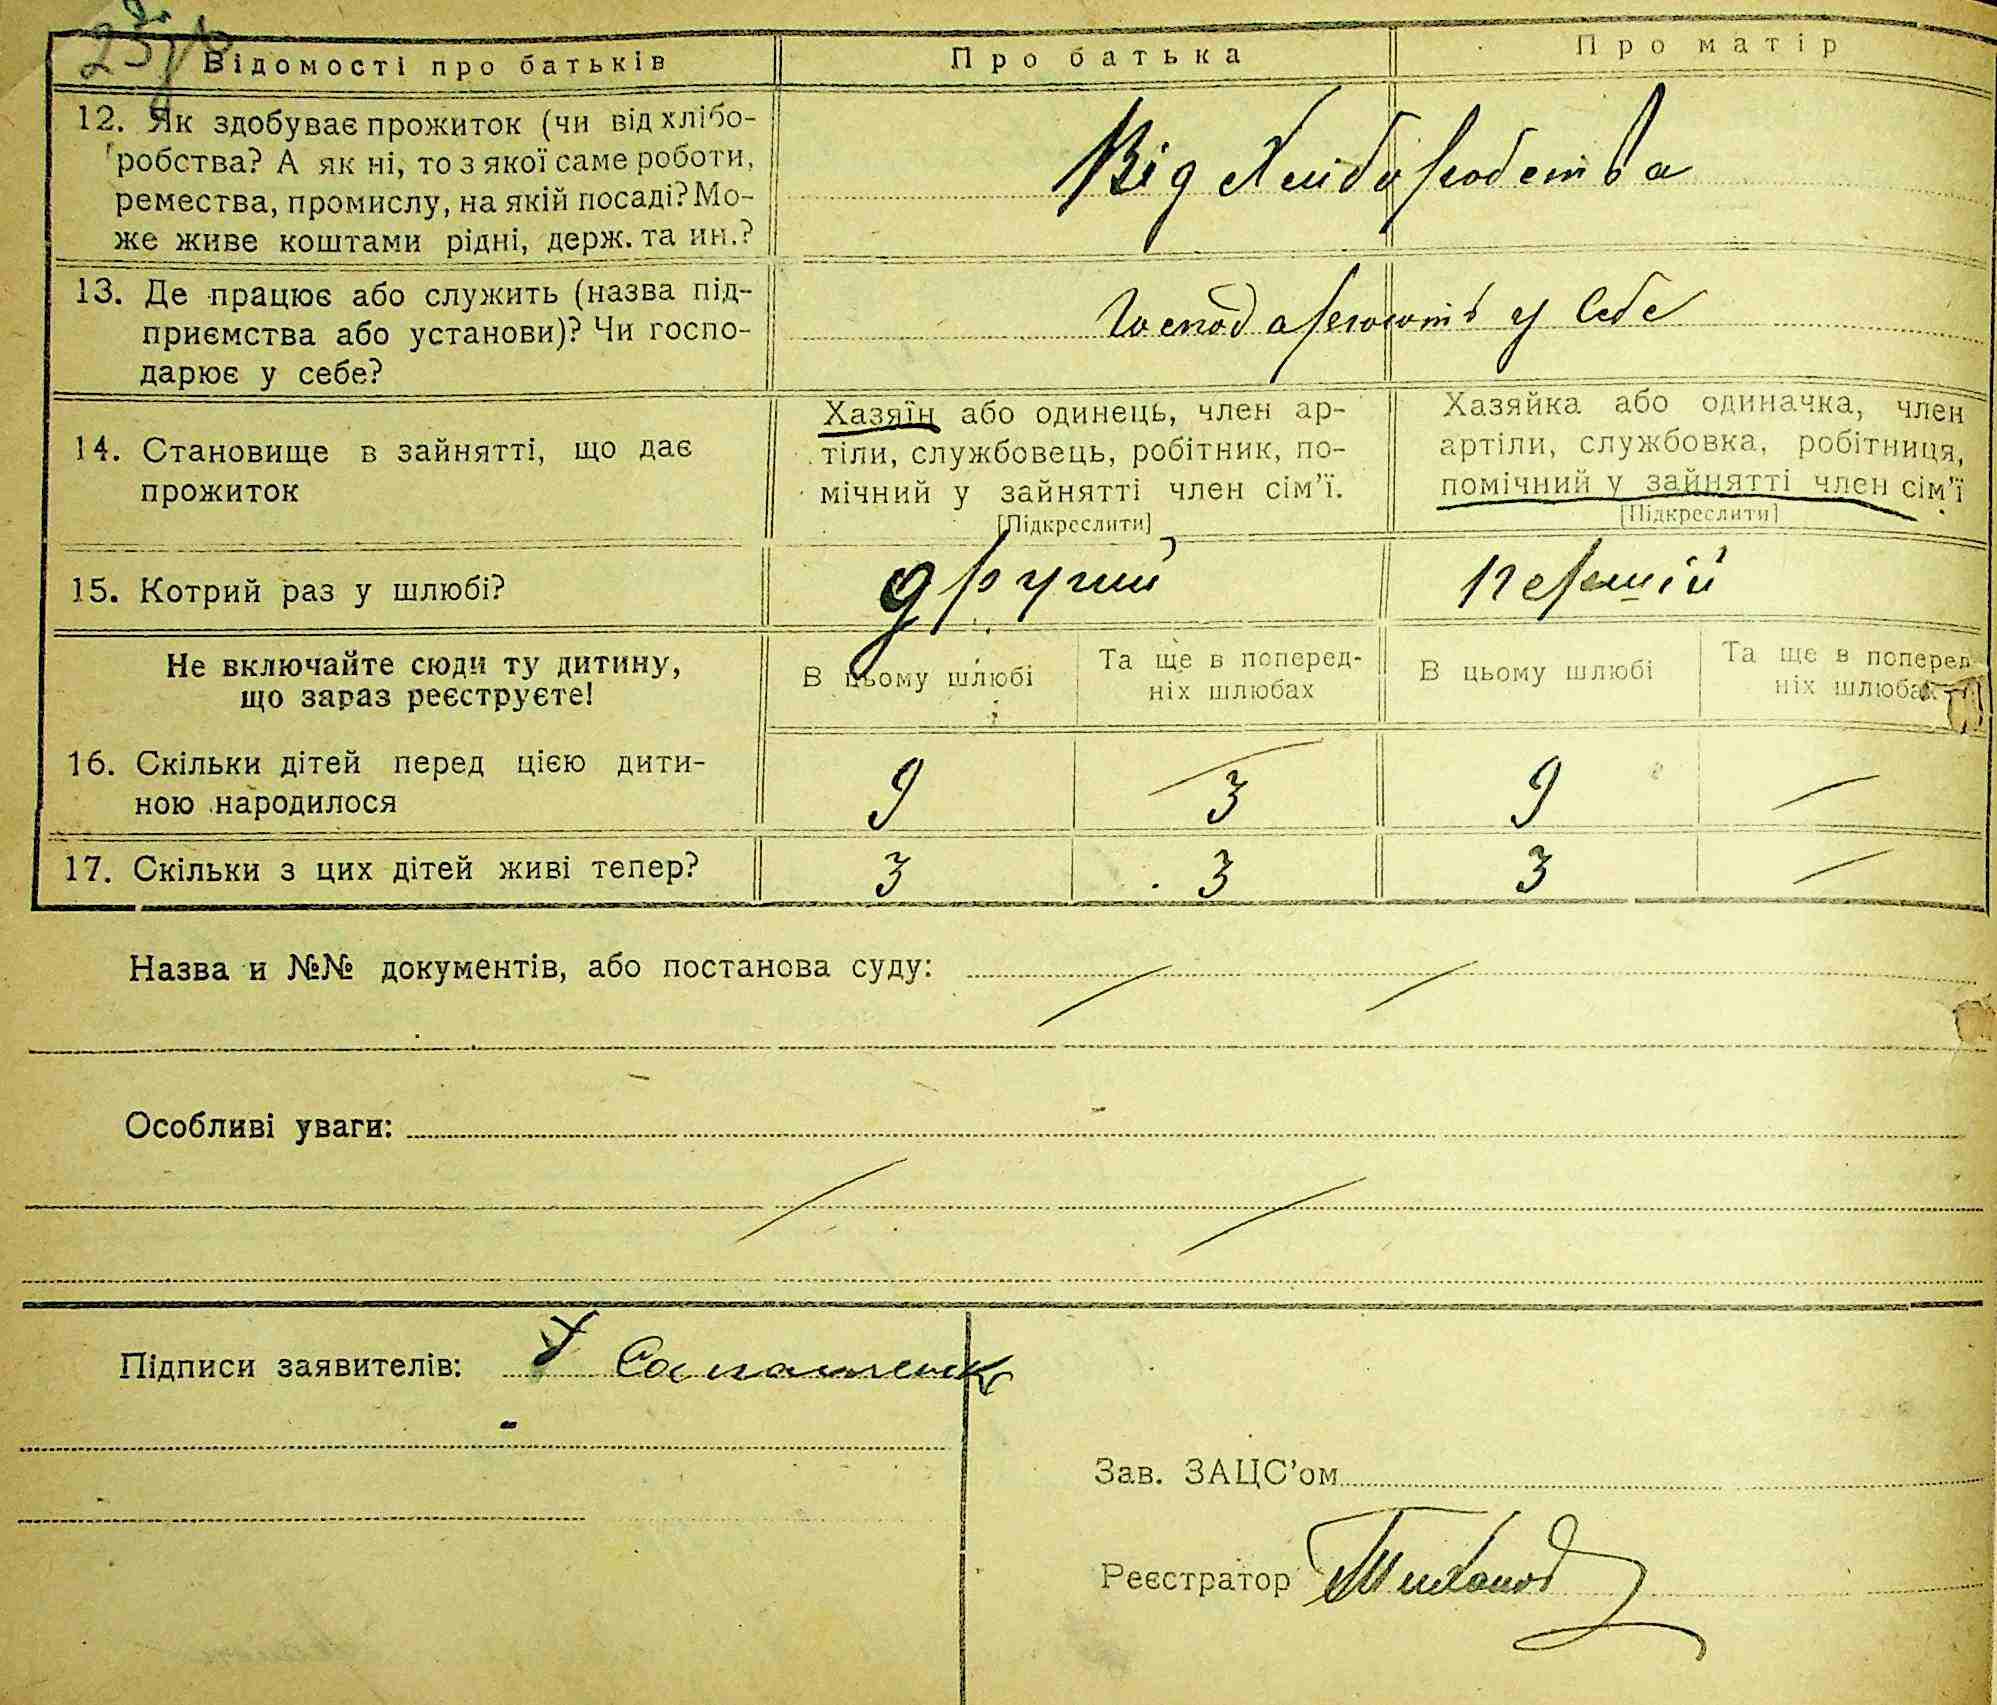 Відомості про батьків
Про батька
Про матір
12. Як здобуває прожиток (чи від хлібо-
робства? А як ні, то з якої саме роботи,
ремества, промислу, на якій посаді? Мо-
же живе коштами рідні, держ. та ин.?
Від Хліборобства
13. Де працює або служить (назва під-
приємства або установи)? Чи госпо-
дарює у себе?
Господарюють у себе
14. Становище в зайнятті, що дає
прожиток
Хазяїн або одинець, член ар-
тіли, службовець, робітник, по-
мічний у зайнятті член сім'ї.
[Підкреслити]
Хазяйка або одиначка, член
артіли, службовка, робітниця,
помічний у зайнятті член сім'ї
[Підкреслити]
15. Котрий раз у шлюбі?
другий
першій
Не включайте сюди ту дитину,
що зараз реєструєте!
В цьому шлюбі
Та ще в поперед-
ніх шлюбах
В цьому шлюбі
Та ще в поперед-
ніх шлюбах
16. Скільки дітей перед цією дити-
ною народилося
9
3
9
—
17. Скільки з цих дітей живі тепер?
3
3
3
—
Назва и №№ документів, або постанова суду:
Особливі уваги:
Підписи заявителів:
Зав. ЗАЦС'ом
Реєстратор Тихонов